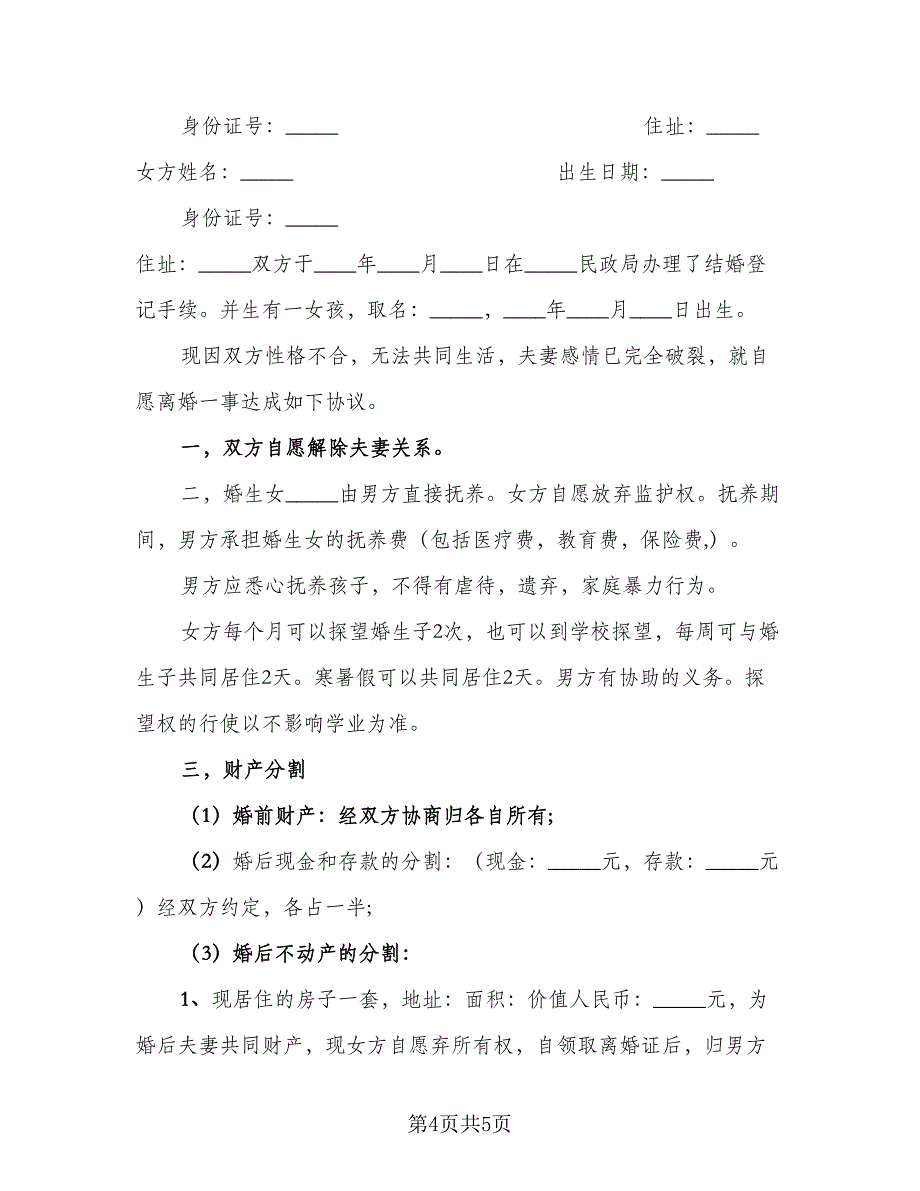 身份证号：_____ 住址：_____
女方姓名：_____ 出生日期：_____
身份证号：_____
住址：_____双方于____年____月____日在_____民政局办理了结婚登
记手续。并生有一女孩，取名：_____，____年____月____日出生。
现因双方性格不合，无法共同生活，夫妻感情已完全破裂，就自
愿离婚一事达成如下协议。
一，双方自愿解除夫妻关系。
二，婚生女_____由男方直接抚养。女方自愿放弃监护权。抚养期
间，男方承担婚生女的抚养费（包括医疗费，教育费，保险费,）。
男方应悉心抚养孩子，不得有虐待，遗弃，家庭暴力行为。
女方每个月可以探望婚生子2次，也可以到学校探望，每周可与婚
生子共同居住2天。寒暑假可以共同居住2天。男方有协助的义务。探
望权的行使以不影响学业为准。
三，财产分割
（1）婚前财产：经双方协商归各自所有;
（2）婚后现金和存款的分割：（现金：_____元，存款：_____元
）经双方约定，各占一半;
（3）婚后不动产的分割：
1、现居住的房子一套，地址：面积：价值人民币：_____元，为
婚后夫妻共同财产，现女方自愿弃所有权，自领取离婚证后，归男方
第4页共5页